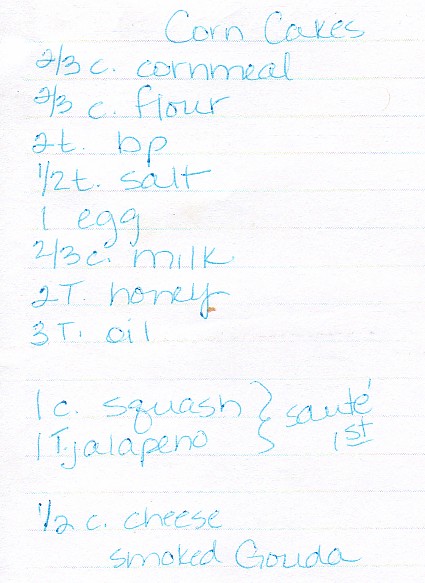 Corn Cakes
2/3 c. cornmeal
2/3 c. flour
2t. bp
1/2t. salt
1 egg
2/3 c. milk
2T. honey
3T. oil
1 c. squash } sauté
1 T. jalapeno } 1st
1/2 c. cheese
smoked Gouda